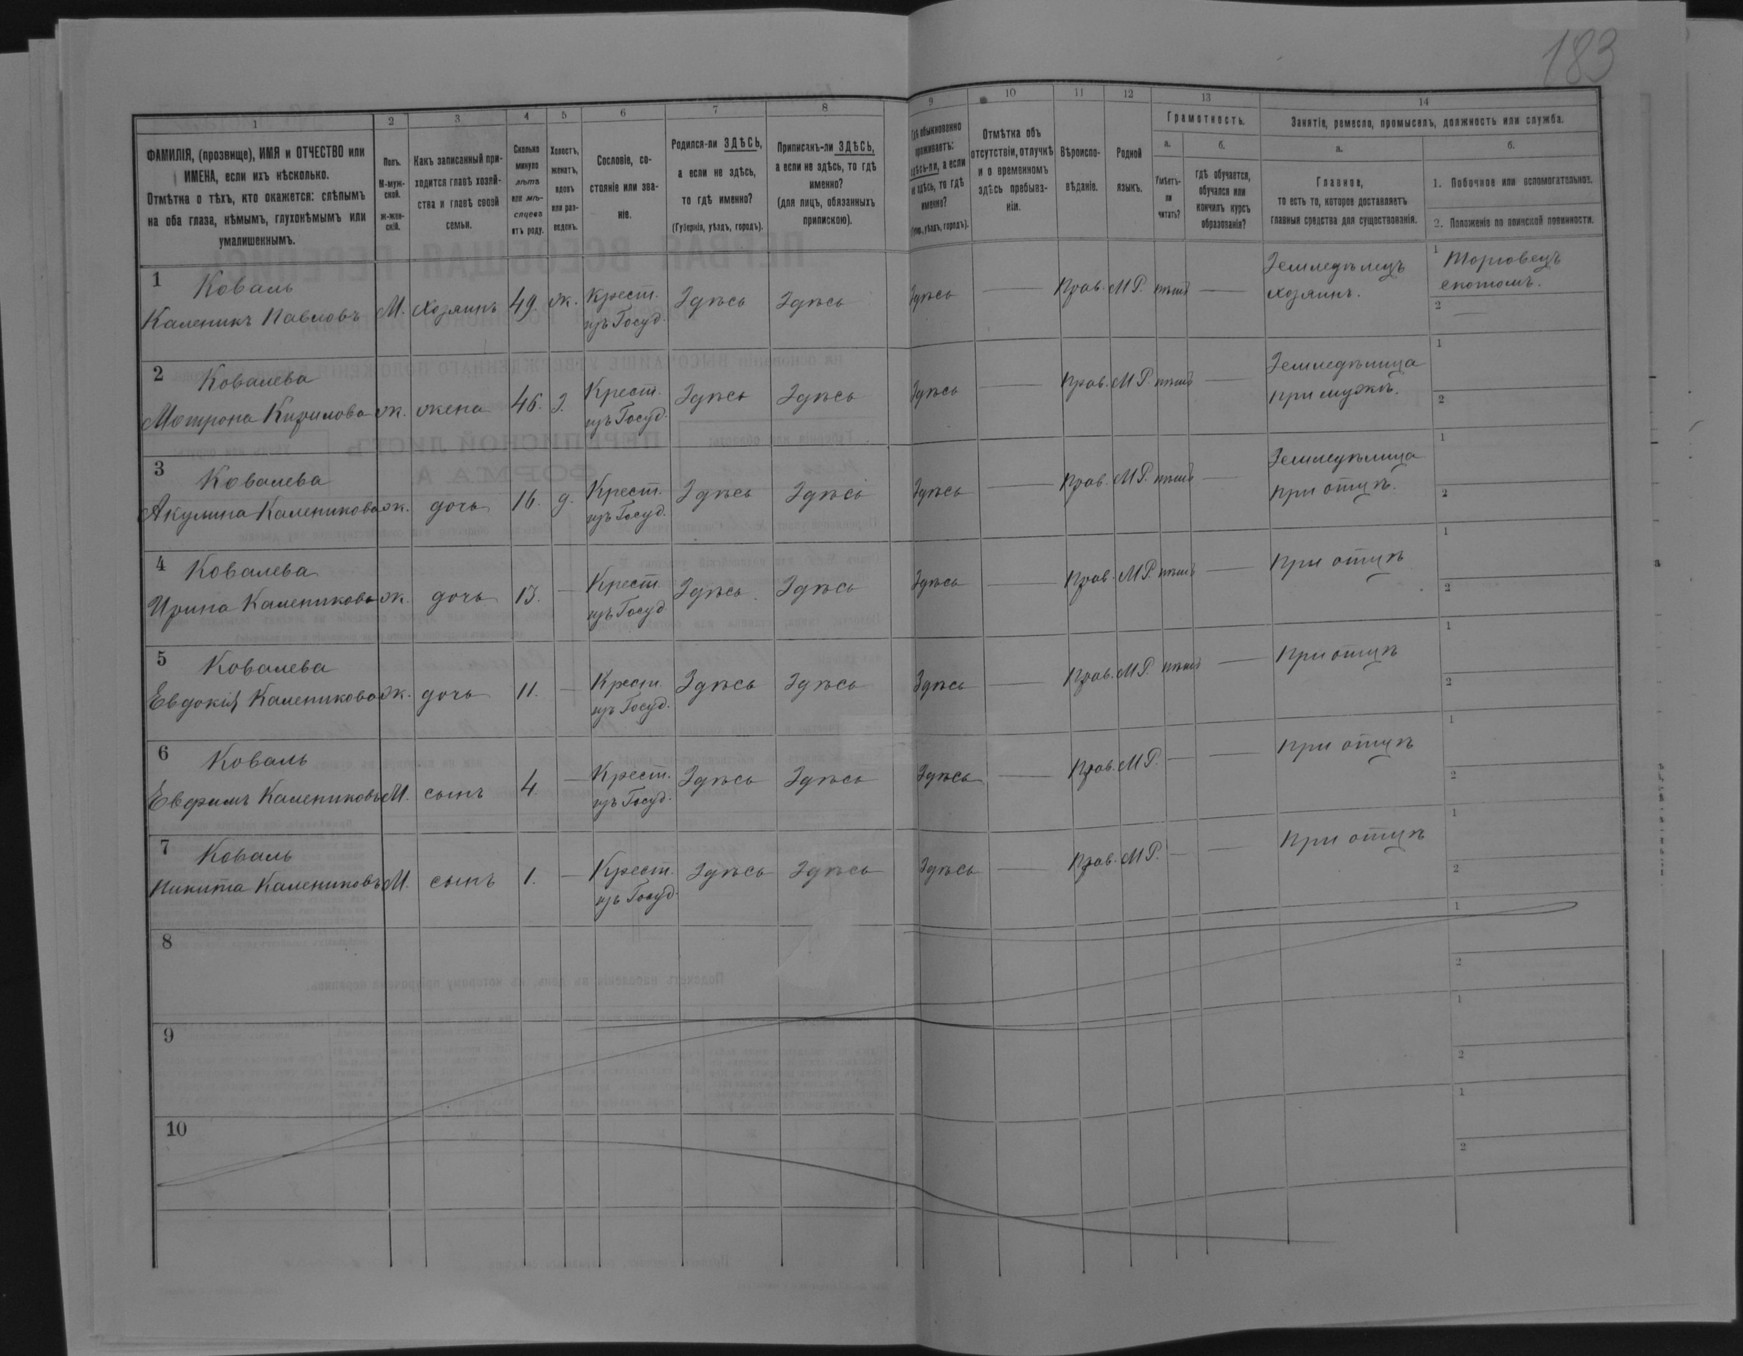 183
1 2 3 4 5 6 7 8 9 10 11 12 13 14
ФАМИЛІЯ, (прозвище), ИМЯ и ОТЧЕСТВО или
ИМЕНА, если ихъ нѣсколько.
Отмѣтка о тѣхъ, кто окажется: слѣпымъ
на оба глаза, нѣмымъ, глухонѣмымъ или
умалишеннымъ.
Полъ.
М-муж-
ской.
ж-жен-
скій.
Какъ записанный при-
ходится главѣ хозяй-
ства и главѣ своей
семьи.
Сколько
минуло
лѣтъ
или мѣ-
сяцевъ
отъ роду.
Холостъ,
женатъ,
вдовъ
или раз-
веденъ.
Сословіе, со-
стояніе или зва-
ніе.
Родился-ли ЗДѢСЬ,
а если не здѣсь,
то гдѣ именно?
(Губернія, уѣздъ, городъ).
Приписанъ-ли ЗДѢСЬ,
а если не здѣсь, то гдѣ
именно?
(для лицъ, обязанныхъ
припискою).
Гдѣ обыкновенно
проживаетъ:
здѣсь-ли, а если
не здѣсь, то гдѣ
именно?
(Губ., уѣздъ, городъ).
Отмѣтка объ
отсутствіи, отлучкѣ
и о временномъ
здѣсь пребыва-
ніи.
Вѣроиспо-
вѣданіе.
Родной
языкъ.
Грамотность.
а.
Умѣетъ-
ли
читать?
б.
Гдѣ обучается,
обучался или
кончилъ курсъ
образованія?
Занятіе, ремесло, промыселъ, должность или служба.
а.
Главное,
то есть то, которое доставляетъ
главныя средства для существованія.
б.
1. Побочное или вспомогательное.
2. Положеніе по воинской повинности.
1 Коваль Крест. Земледѣлецъ 1 Торговецъ
Каленикъ Павловъ М. Хозяинъ 49. ж. изъ Госуд. Здѣсь Здѣсь Здѣсь — Прав. М.Р. нѣтъ — хозяинъ. скотомъ.
2 —
2 Ковалева Крест. Земледѣлица 1
Мотрона Кирилова ж. жена 46. З. изъ Госуд. Здѣсь Здѣсь Здѣсь — Прав. М.Р. нѣтъ — при мужѣ. 2
3 Ковалева Крест. Земледѣлица 1
Акулина Каленикова ж. дочь 16. д. изъ Госуд. Здѣсь Здѣсь Здѣсь — Прав. М.Р. нѣтъ — при отцѣ. 2
4 Ковалева Крест. 1
Ирина Каленикова ж. дочь 13. — изъ Госуд Здѣсь Здѣсь Здѣсь — Прав. М.Р. нѣтъ — при отцѣ 2
5 Ковалева Крест. 1
Евдокія Каленикова ж. дочь 11. — изъ Госуд. Здѣсь Здѣсь Здѣсь — Прав. М.Р. нѣтъ — при отцѣ 2
6 Коваль Крест. 1
Евфимъ Калениковъ М. сынъ 4. — изъ Госуд. Здѣсь Здѣсь Здѣсь — Прав. М.Р. — — при отцѣ 2
7 Коваль Крест. 1
Никита Калениковъ М. сынъ 1. — изъ Госуд. Здѣсь Здѣсь Здѣсь — Прав. М.Р. — — при отцѣ 2
8 1
2
9 1
2
10 1
2